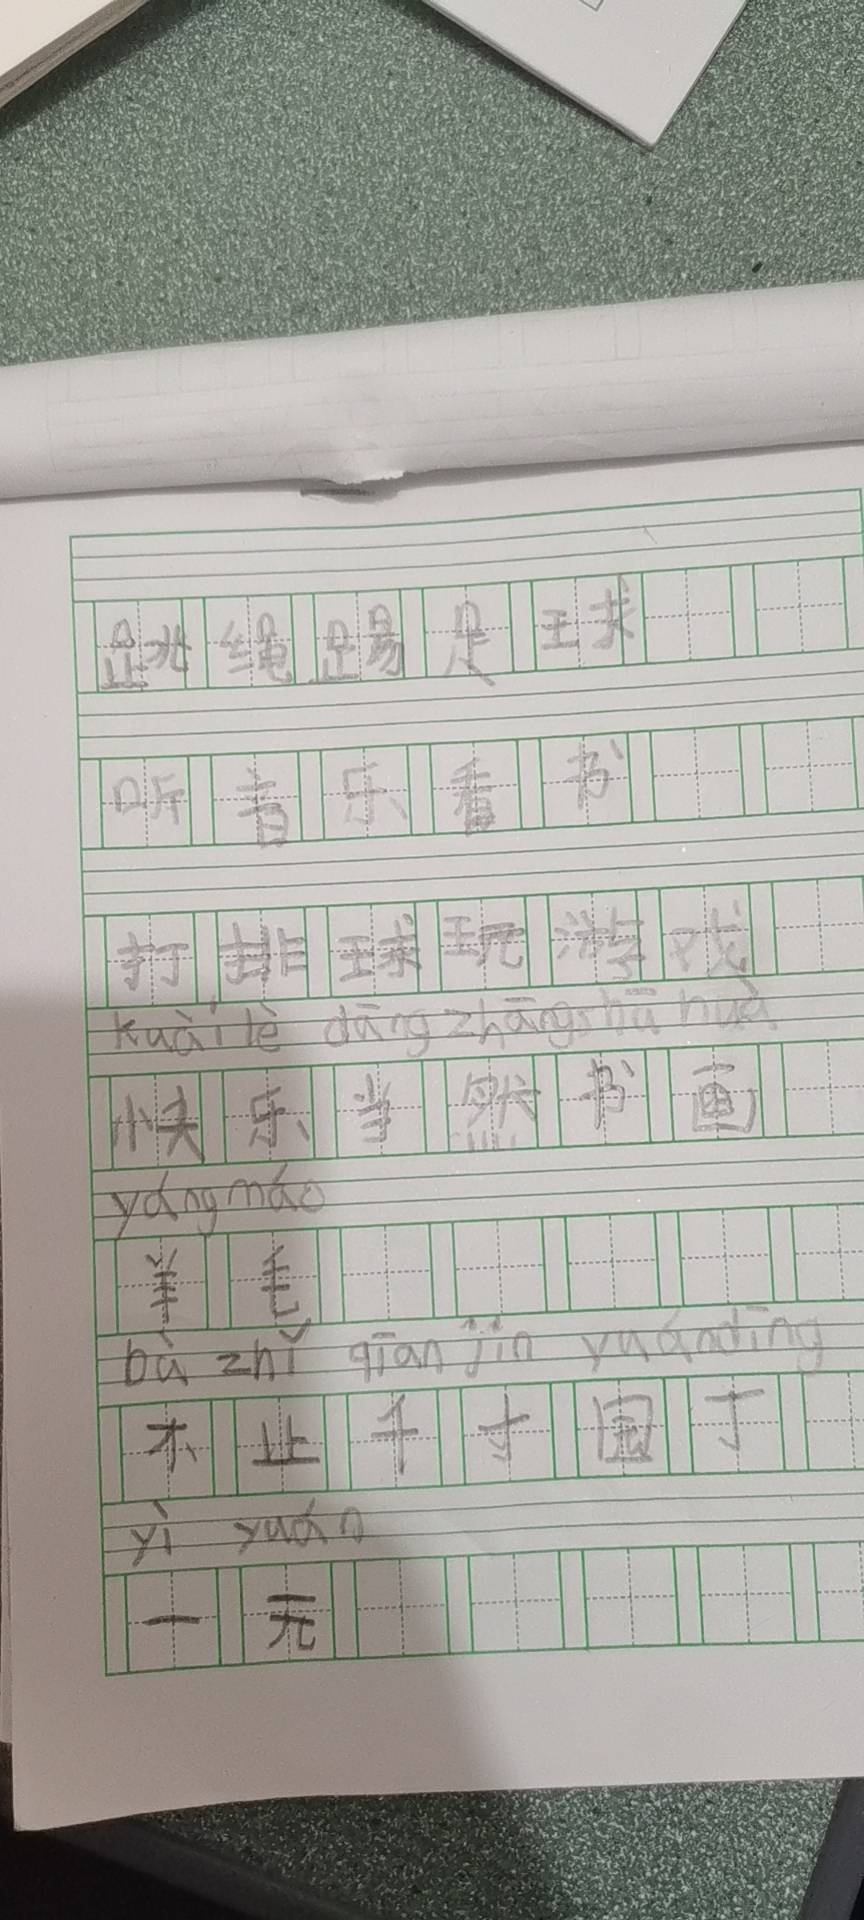 跳绳踢足球
听音乐看书
打排球玩游戏
kuài lè dāng zhāng shū huà
快乐当然书画
yáng máo
羊毛
bù zhǐ qiān jin yuándīng
不止千寸园丁
yì yuán
一元